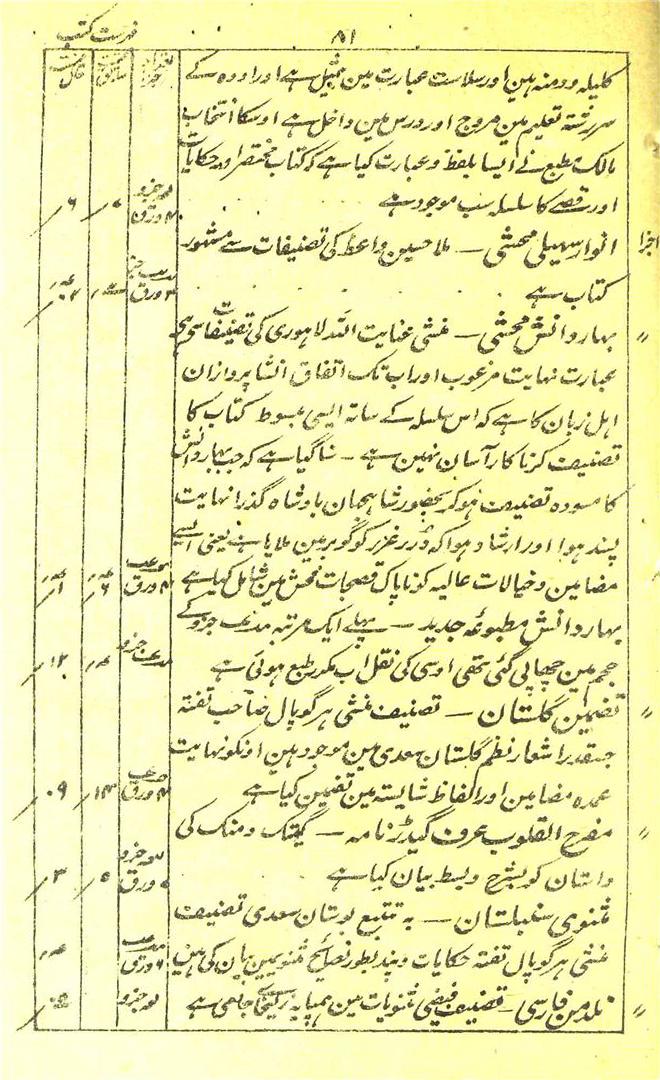 ۸۱
فہرست کتب
کلیلہ و دمنہ ہین اور سلاست عبارت مین بمثیل ہے اور اودہ کے
سررشتۂ تعلیم مین مروج اور درس مین داخل ہے اوسکا انتخاب
مالک مطبع نے ایسا بلفظ و عبارت کیا ہے کہ کتاب مختصر اور حکایات
اور قصے کا سلسلہ سب موجود ہے
انوار سہیلی محشی — ملا حسین واعظ کی تصنیفات سے مشہور
کتاب ہے
بہار دانش محشی — منشی عنایت اللہ لاہوری کی تصنیفات سے ہی
عبارت نہایت مرغوب اور اب تک اتفاق انشا پردازان
اہل زبان کا ہے کہ اس سلسلہ کے ساتہ ایسی مبسوط کتاب کا
تصنیف کرنا کار آسان نہین ہے — سنا گیا ہے کہ جب بہار دانش
کا مسودہ تصنیف ہو کر بحضور شاہجہان بادشاہ گذرا نہایت
پسند ہوا اور ارشاد ہوا کہ در عزیز کو گوبر مین ملایا ہے یعنی ایسے
مضامین و خیالات عالیہ کو ناپاک قصجات فحش مین شامل کیا ہے
بہار دانش مطبوعۂ جدید — پہلے ایک مرتبہ جزو کے
حجم مین چھاپی گئی تھی اوسی کی نقل اب مکرر طبع ہوئی ہے
تضمین گلستان — تصنیف منشی ہرگوپال صاحب تفتہ
جسقدر اشعار نظم گلستان سعدی مین موجود ہین اونکو نہایت
عمدہ مضامین اور الفاظ شایستہ مین تضمین کیا ہے
مفرح القلوب عرف گیدڑ نامہ — دمنک کی
داستان کو بشرح و بسط بیان کیا ہے
مثنوی سنبلستان — بہ تتبع بوستان سعدی تصنیف
منشی ہرگوپال تفتہ حکایات و پند بطور نصائح مثنوی مین بیان کی ہین
نلدمن فارسی — تصنیف فیضی مثنویات مین ہے